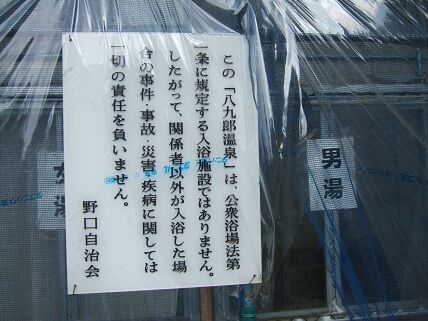 この「八九郎温泉」は、公衆浴場法第
一条に規定する入浴施設ではありません。
したがって、関係者以外が入浴した場
合の事件・事故・災害・疾病に関しては
一切の責任を負いません。
野口自治会
男湯
女湯